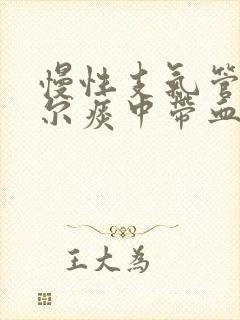 慢性支氣管
尔痰中帶血
王大為